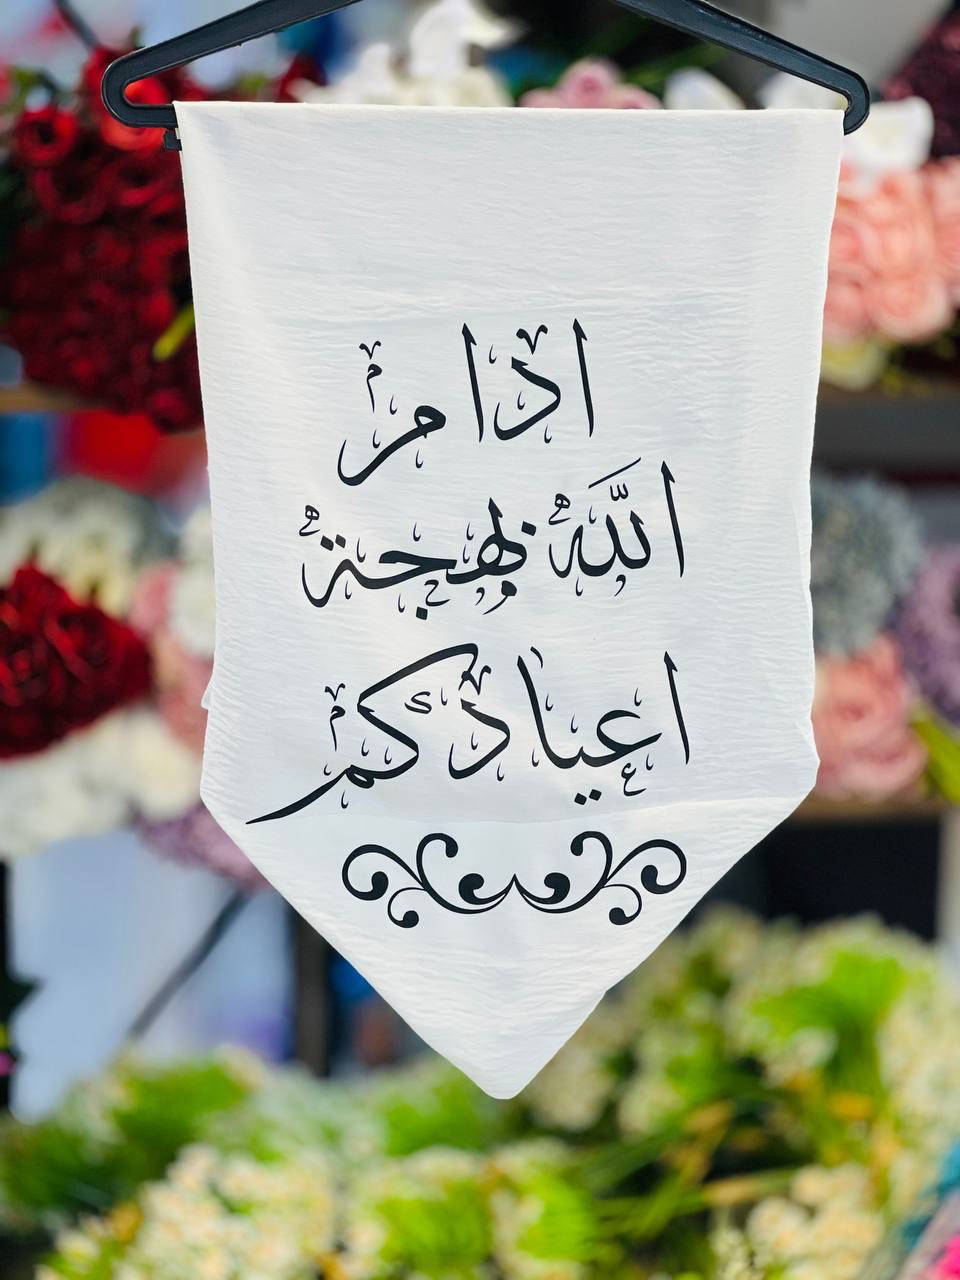 ادام
الله بهجة
اعيادكم